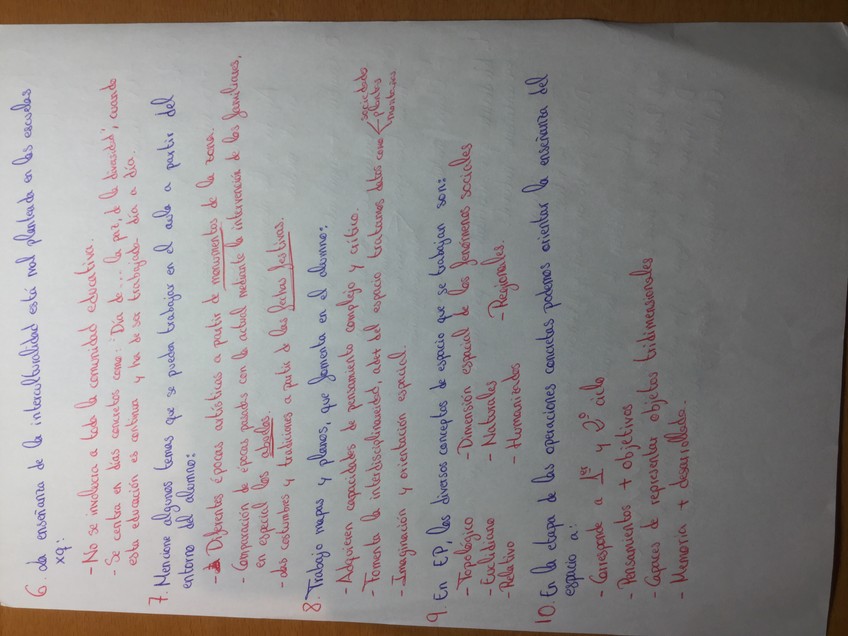 6. La enseñanza de la interculturalidad está mal planteada en las escuelas
xq:
- No se involucra a toda la comunidad educativa.
- Se centra en días concretos como: "Día de... la paz, de la diversidad", cuando
esta educación es continua y ha de ser trabajada día a día.
7. Mencione algunos temas que se puedan trabajar en el aula a partir del
entorno del alumno:
- Diferentes épocas artísticas a partir de monumentos de la zona.
- Comparación de épocas pasadas con la actual mediante la intervención de los familiares,
en especial los abuelos.
- Las costumbres y tradiciones a partir de las fechas festivas.
8. Trabajo mapas y planos, que fomenta en el alumno:
- Adquieren capacidades de pensamiento complejo y crítico.
- Fomenta la interdisciplinariedad, del espacio tratamos datos como sociedad
plantas
montañas
- Imaginación y orientación espacial.
9. En EP, los diversos conceptos de espacio que se trabajan son:
- Topológico - Dimensión espacial de los fenómenos sociales
- Euclidiano - Naturales
- Relativo - Humanizados - Regionales.
10. En la etapa de las operaciones concretas podemos orientar la enseñanza del
espacio a:
- Corresponde a 1er y 2º ciclo
- Pensamientos + objetivos
- Capaces de representar objetos bidimensionales
- Memoria + desarrollada.